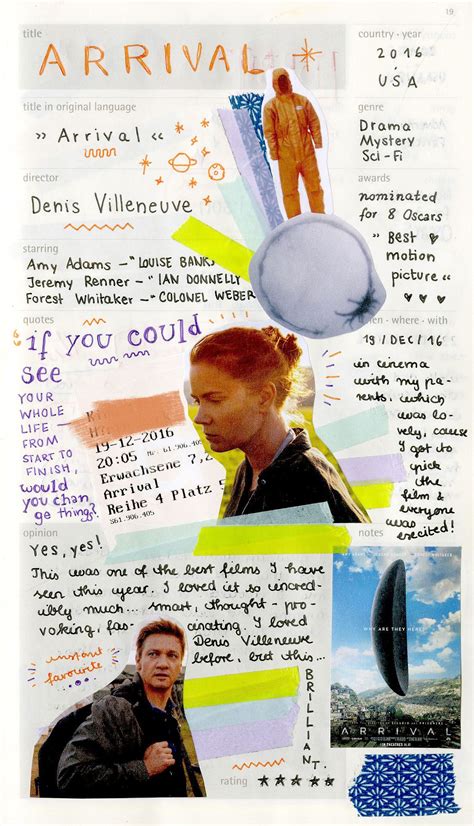 19
title
ARRIVAL
country · year
2016
USA
title in original language
» Arrival «
genre
Drama
Mystery
Sci-Fi
director
Denis Villeneuve
awards
nominated
for 8 Oscars
» Best
motion
picture «
starring
Amy Adams — "LOUISE BANKS
Jeremy Renner — "IAN DONNELLY
Forest Whitaker — "COLONEL WEBER
quotes
if you could
see
YOUR
WHOLE
LIFE —
FROM
START TO
FINISH,
would
you chan
ge things?
19-12-2016
20:05
Erwachsene 7,2
Arrival
Reihe 4 Platz 5
S61.906.405
· when · where · with
19/DEC/16
in cinema
with my pa-
rents. which
was lo-
vely, cause
I got to
pick
the
film &
everyone
was
excited!
opinion
Yes, yes!
This was one of the best films I have
seen this year. I loved it so incred-
ibly much... smart, thought-pro-
voking, fas- cinating. I loved
Denis Villeneuve
before, but this...
BRILLIANT.
instant
favourite
rating
notes
WHY ARE THEY HERE?
ARRIVAL